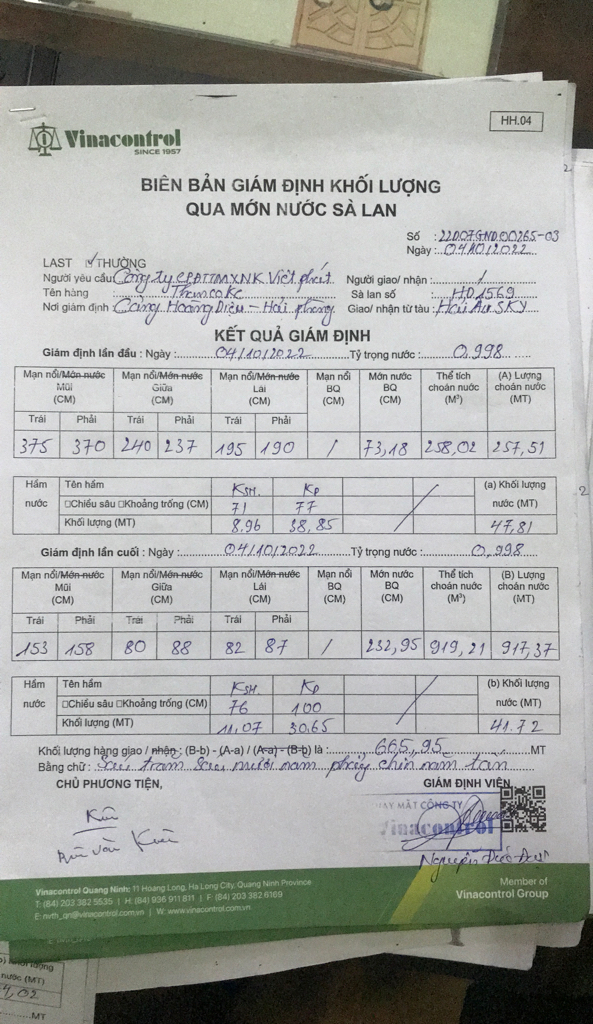 Vinacontrol
SINCE 1957
HH.04
BIÊN BẢN GIÁM ĐỊNH KHỐI LƯỢNG
QUA MỚN NƯỚC SÀ LAN
Số : 22D07GND00265-03
Ngày : 04/10/2022
LAST THƯỜNG
Người yêu cầu: Công ty CPĐTTMXNK Việt phát Người giao/ nhận : /
Tên hàng : Than cốc Sà lan số : HD1569
Nơi giám định : Cảng Hoàng Diệu - Hải phòng Giao/ nhận từ tàu : Hải Âu SKY
KẾT QUẢ GIÁM ĐỊNH
Giám định lần đầu : Ngày : 04/10/2022 Tỷ trọng nước : 0,998
Mạn nổi/Mớn nước Mũi (CM) Mạn nổi/Mớn nước Giữa (CM) Mạn nổi/Mớn nước Lái (CM) Mạn nổi BQ (CM) Mớn nước BQ (CM) Thể tích choán nước (M³) (A) Lượng choán nước (MT)
Trái Phải Trái Phải Trái Phải
375 370 240 237 195 190 / 73,18 258,02 257,51
Hầm nước Tên hầm KSH. Kp (a) Khối lượng nước (MT)
□Chiều sâu □Khoảng trống (CM) 71 77
Khối lượng (MT) 8,96 38,85 47,81
Giám định lần cuối : Ngày : 04/10/2022 Tỷ trọng nước : 0,998
Mạn nổi/Mớn nước Mũi (CM) Mạn nổi/Mớn nước Giữa (CM) Mạn nổi/Mớn nước Lái (CM) Mạn nổi BQ (CM) Mớn nước BQ (CM) Thể tích choán nước (M³) (B) Lượng choán nước (MT)
Trái Phải Trái Phải Trái Phải
153 158 80 88 82 87 / 232,95 919,21 917,37
Hầm nước Tên hầm KSH. Kp (b) Khối lượng nước (MT)
□Chiều sâu □Khoảng trống (CM) 76 100
Khối lượng (MT) 11,07 30,65 41.72
Khối lượng hàng giao / nhận : (B-b) - (A-a) / (A-a) - (B-b) là : 665,95 MT
Bằng chữ : Sáu trăm sáu mươi năm phẩy chín năm tấn
CHỦ PHƯƠNG TIỆN, GIÁM ĐỊNH VIÊN,
MẶT CÔNG TY
Vinacontrol
Vinacontrol Quang Ninh: 11 Hoang Long, Ha Long City, Quang Ninh Province
T: (84) 203 382 5535 | H: (84) 936 911 811 | F: (84) 203 382 6169
E: nvth_qn@vinacontrol.com.vn | W: www.vinacontrol.com.vn
Member of
Vinacontrol Group
nước (MT)
MT